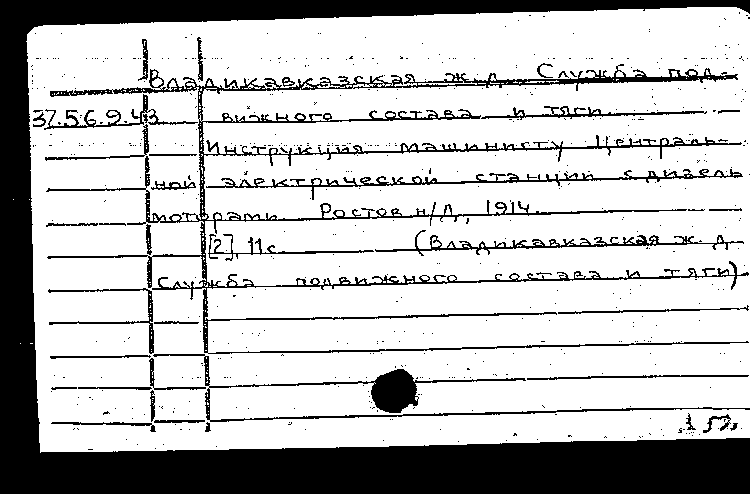 Владикавказская ж. д. Служба под-
37.56.9.43 вижного состава и тяги.
Инструкция машинисту Централь-
ной электрической станции с дизель
моторами. Ростов н/Д, 1914.
[2], 11с. (Владикавказская ж. д.
Служба подвижного состава и тяги)